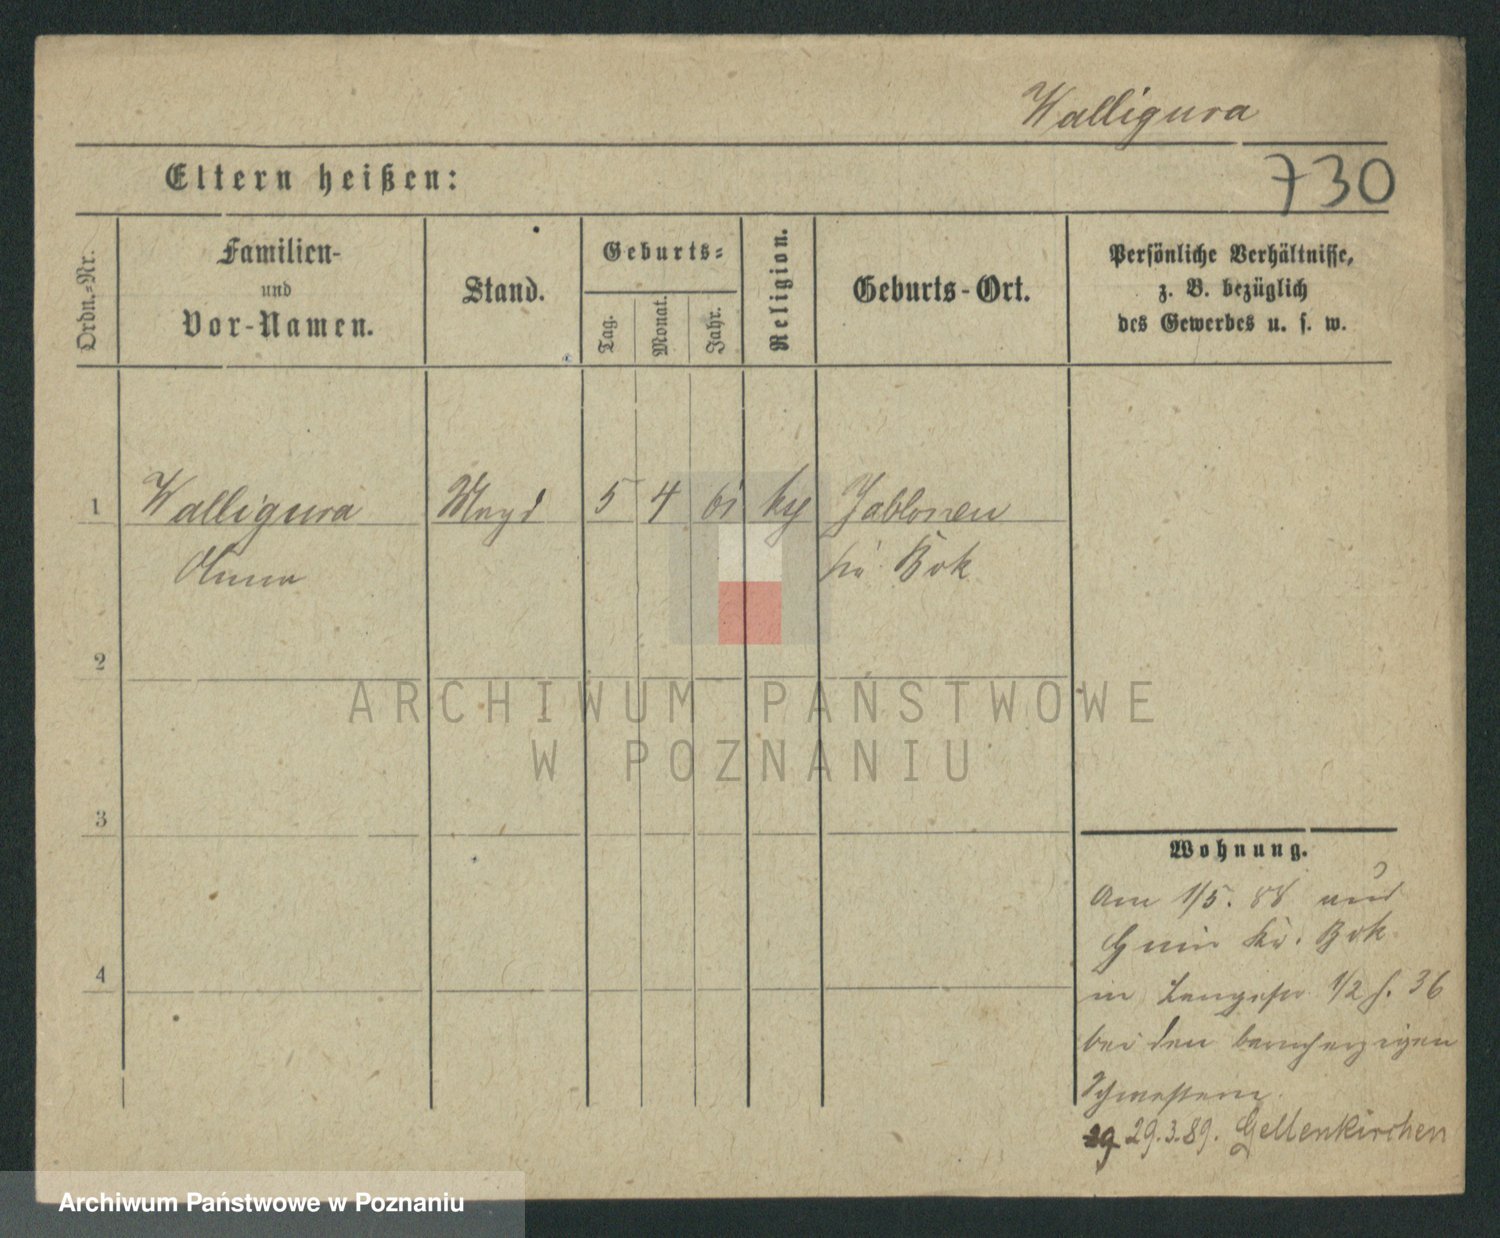 Walligura
730
Eltern heißen:
Ordn.-Nr.
Familien-
und
Vor-Namen.
Stand.
Geburts-
Tag.
Monat.
Jahr.
Religion.
Geburts-Ort.
Persönliche Verhältnisse,
z. B. bezüglich
des Gewerbes u. s. w.
1 Walligura Magd 5 4 61 kth Jablonen
Anna Bok
2
ARCHIWUM PAŃSTWOWE
W POZNANIU
3
Wohnung.
Am 1/5. 88 aus
Kr. Bok
4
in 1/2 36
bei den barmherzigen
Schwestern.
29.3.89. Geilenkirchen
Archiwum Państwowe w Poznaniu